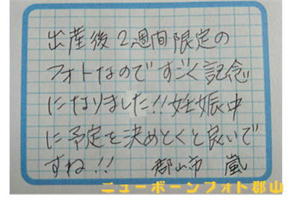 出産後2週間限定の
フォトなのですごく記念
になりました!!妊娠中
に予定を決めとくと良いで
すね!! 郡山市 嵐
ニューボーンフォト郡山